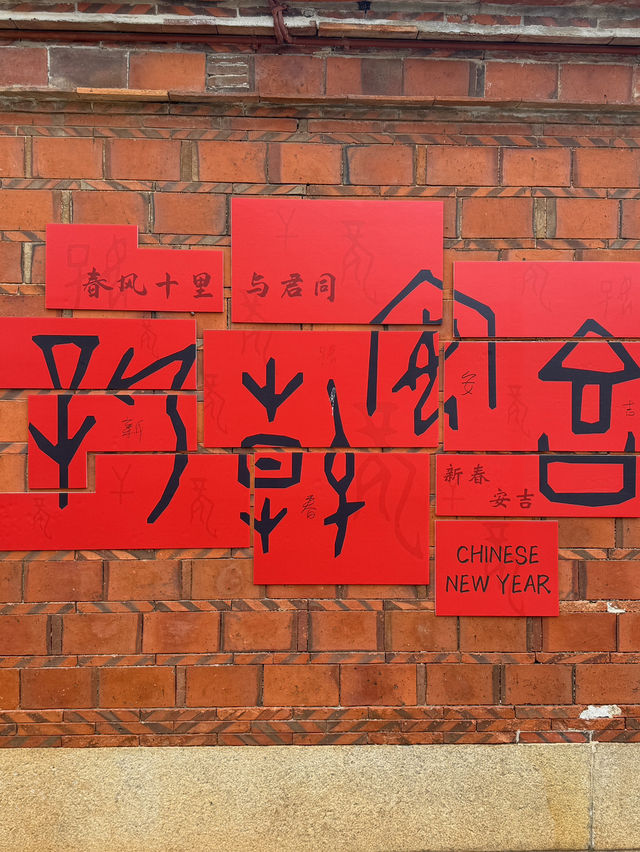 春风十里 与君同
新春安吉
安
吉
新
春
新春
安吉
CHINESE
NEW YEAR